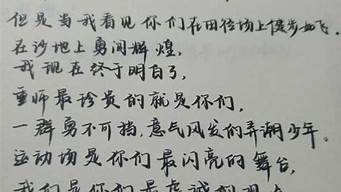 但是当我看见你们在田径场上健步如飞，
在沙地上勇闯辉煌，
我现在终于明白了，
重师最珍贵的就是你们，
一群勇不可挡，意气风发的弄潮少年。
运动场是你们最闪亮的舞台，
我们是你们最虔诚的观众